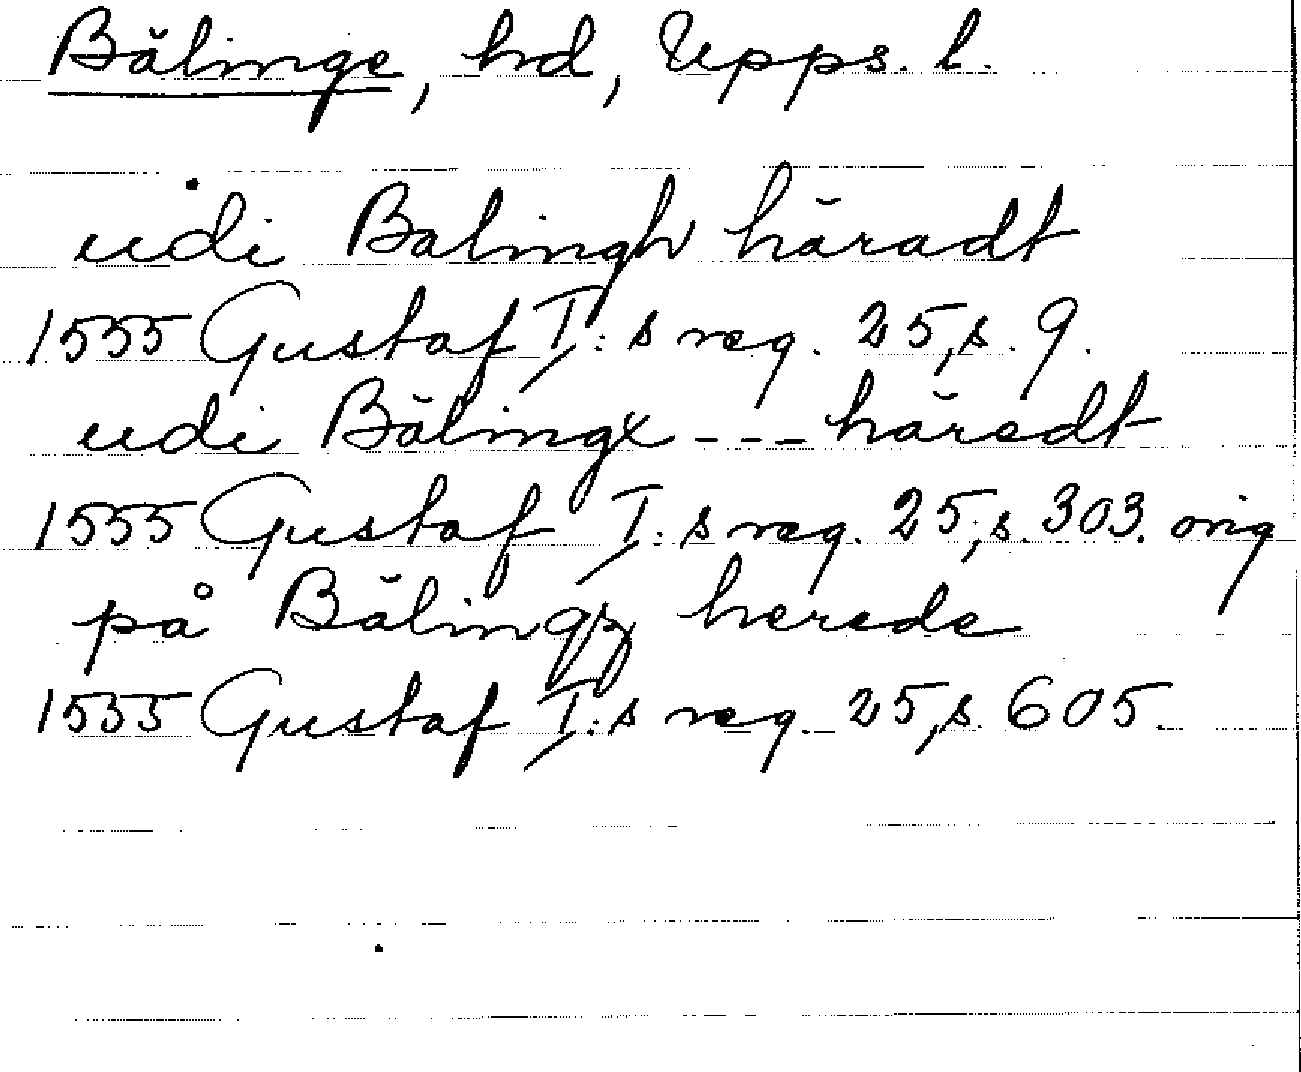 Bälinge, hd, Upps. l.
udi Balingh häradt
1555 Gustaf I:s reg. 25, s. 9.
udi Bälingx --- häredt
1555 Gustaf I:s reg. 25, s. 303. orig
på Bälingz herede
1555 Gustaf I:s reg. 25, s. 605.